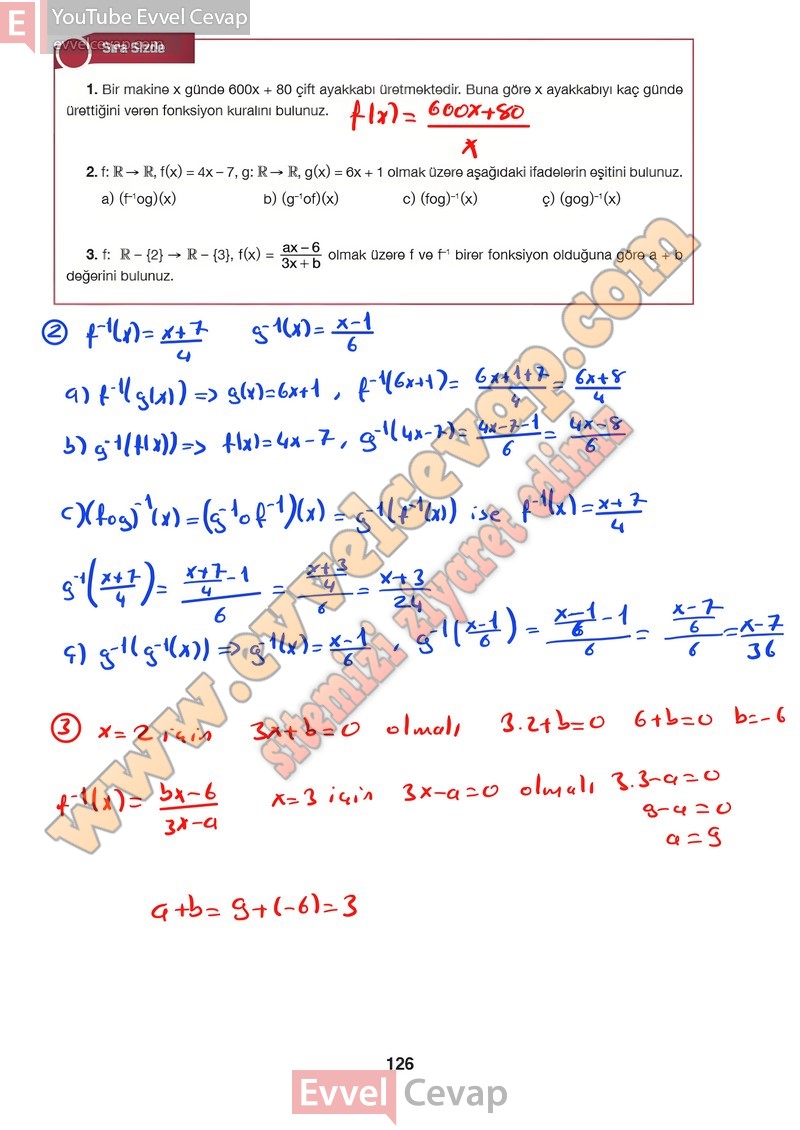 E YouTube Evvel Cevap
evvelcevap.com
Sıra Sizde
1. Bir makine x günde 600x + 80 çift ayakkabı üretmektedir. Buna göre x ayakkabıyı kaç günde
ürettiğini veren fonksiyon kuralını bulunuz. f(x) = (600x+80)/x
2. f: ℝ → ℝ, f(x) = 4x – 7, g: ℝ → ℝ, g(x) = 6x + 1 olmak üzere aşağıdaki ifadelerin eşitini bulunuz.
a) (f⁻¹og)(x) b) (g⁻¹of)(x) c) (fog)⁻¹(x) ç) (gog)⁻¹(x)
3. f: ℝ – {2} → ℝ – {3}, f(x) = (ax – 6)/(3x + b) olmak üzere f ve f⁻¹ birer fonksiyon olduğuna göre a + b
değerini bulunuz.
② f⁻¹(x) = (x+7)/4 g⁻¹(x) = (x-1)/6
a) f⁻¹(g(x)) => g(x) = 6x+1, f⁻¹(6x+1) = (6x+1+7)/4 = (6x+8)/4
b) g⁻¹(f(x)) => f(x) = 4x-7, g⁻¹(4x-7) = (4x-7-1)/6 = (4x-8)/6
c) (fog)⁻¹(x) = (g⁻¹of⁻¹)(x) = g⁻¹(f⁻¹(x)) ise f⁻¹(x) = (x+7)/4
g⁻¹((x+7)/4) = ((x+7)/4 - 1)/6 = ((x+3)/4)/6 = (x+3)/24
ç) g⁻¹(g⁻¹(x)) => g⁻¹(x) = (x-1)/6, g⁻¹((x-1)/6) = ((x-1)/6 - 1)/6 = ((x-7)/6)/6 = (x-7)/36
③ x=2 için 3x+b=0 olmalı 3.2+b=0 6+b=0 b=-6
f⁻¹(x) = (bx-6)/(3x-a) x=3 için 3x-a=0 olmalı 3.3-a=0
9-a=0
a=9
a+b = 9+(-6) = 3
www.evvelcevap.com
sitemizi ziyaret ediniz
126
Evvel Cevap